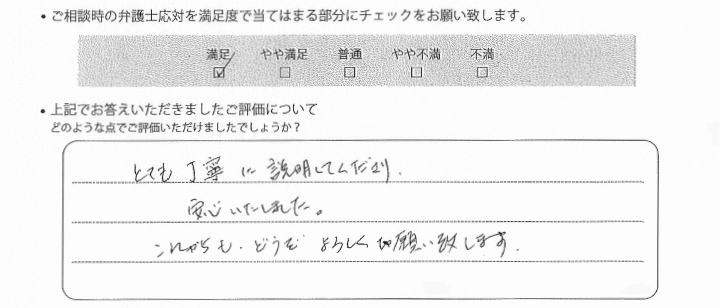 • ご相談時の弁護士応対を満足度で当てはまる部分にチェックをお願い致します。
満足 やや満足 普通 やや不満 不満
☑ ☐ ☐ ☐ ☐
• 上記でお答えいただきましたご評価について
どのような点でご評価いただけましたでしょうか？
とても丁寧に説明してくださり、
安心いたしました。
これからも、どうぞよろしくお願い致します。